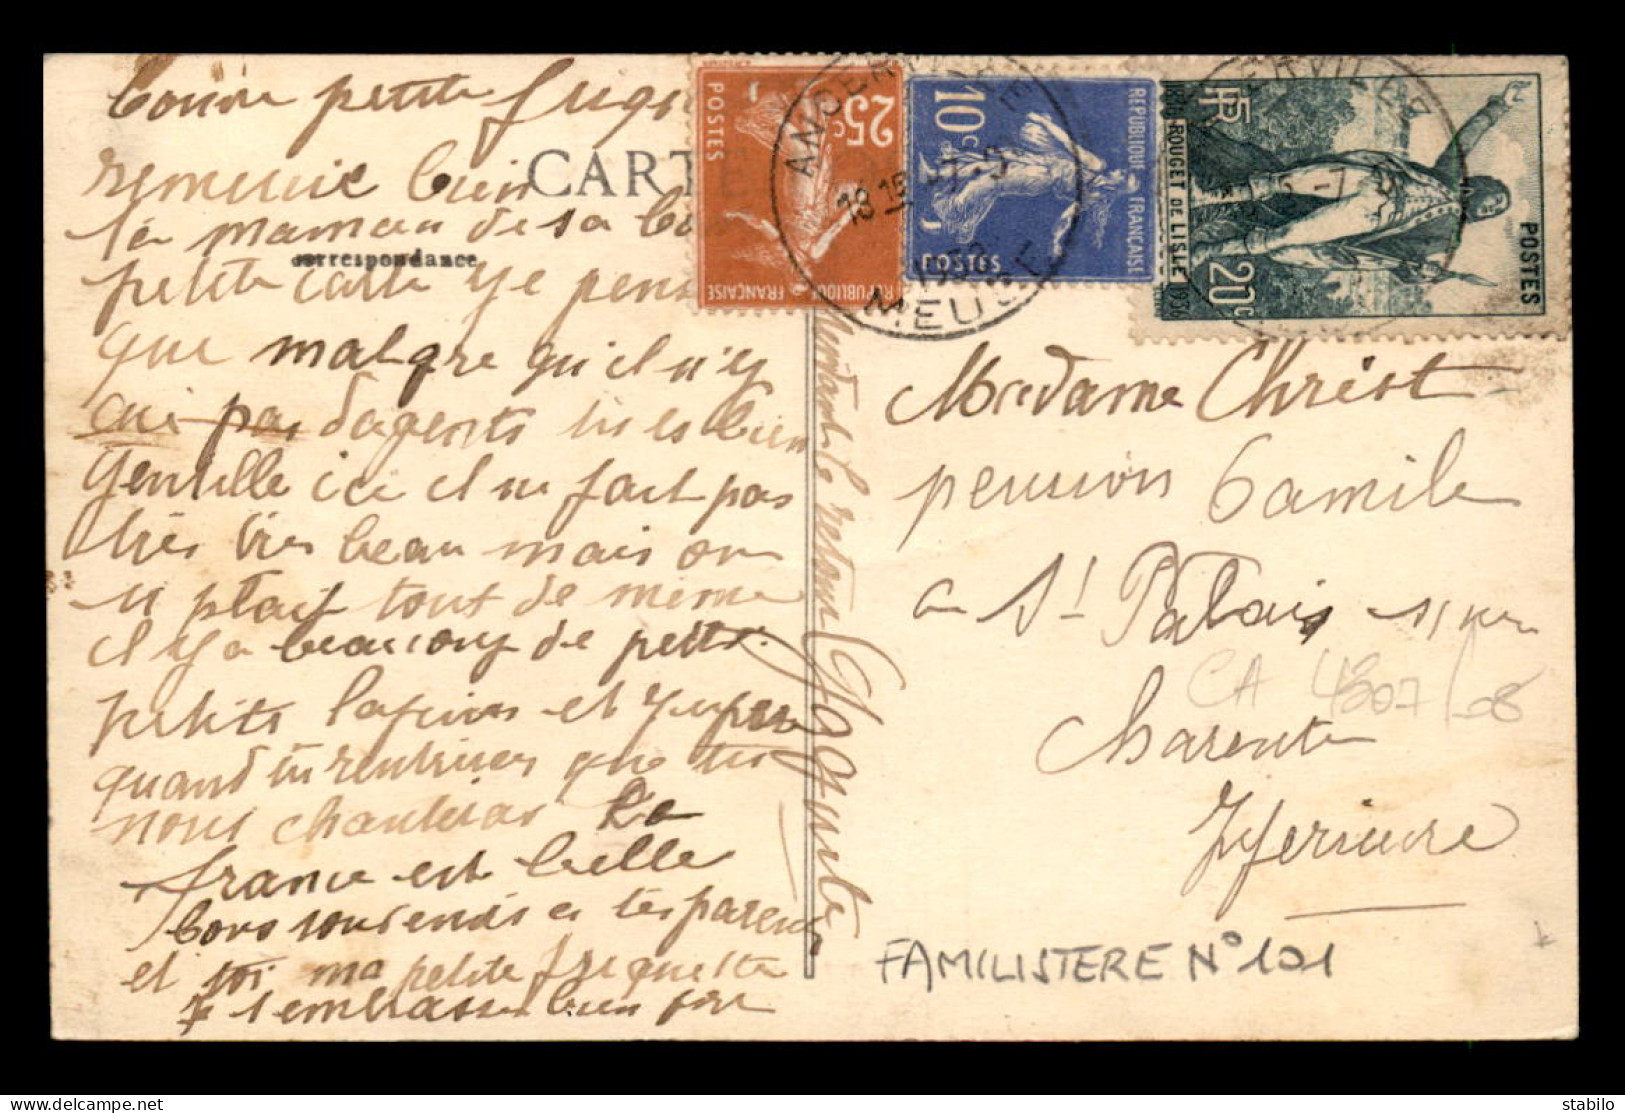 bonne petite
remercie bien
la maman de sa
petite carte je pens
que malgre qu'il n'y
pas dagents tu es bien
gentille ici il ne fait pas
très très beau mais on
s'y plait tout de meme
il y a beaucoup de petits
petits lapins et
quand tu rentreras que tu
nous chanteras La
france est belle
bons souvenirs a tes parents
et toi ma petite friquette
je t'embrasse bien fort
CARTE
correspondance
le retour
25c
POSTES
REPUBLIQUE FRANÇAISE
10c
POSTES
REPUBLIQUE FRANÇAISE
RF
ROUGET DE LISLE
1936
20c
POSTES
MEUSE
Madame Christ
pension Camille
a St Palais s/ mer
Charente
Inferieure
CA 4307/08
FAMILISTERE N° 101
stabilo